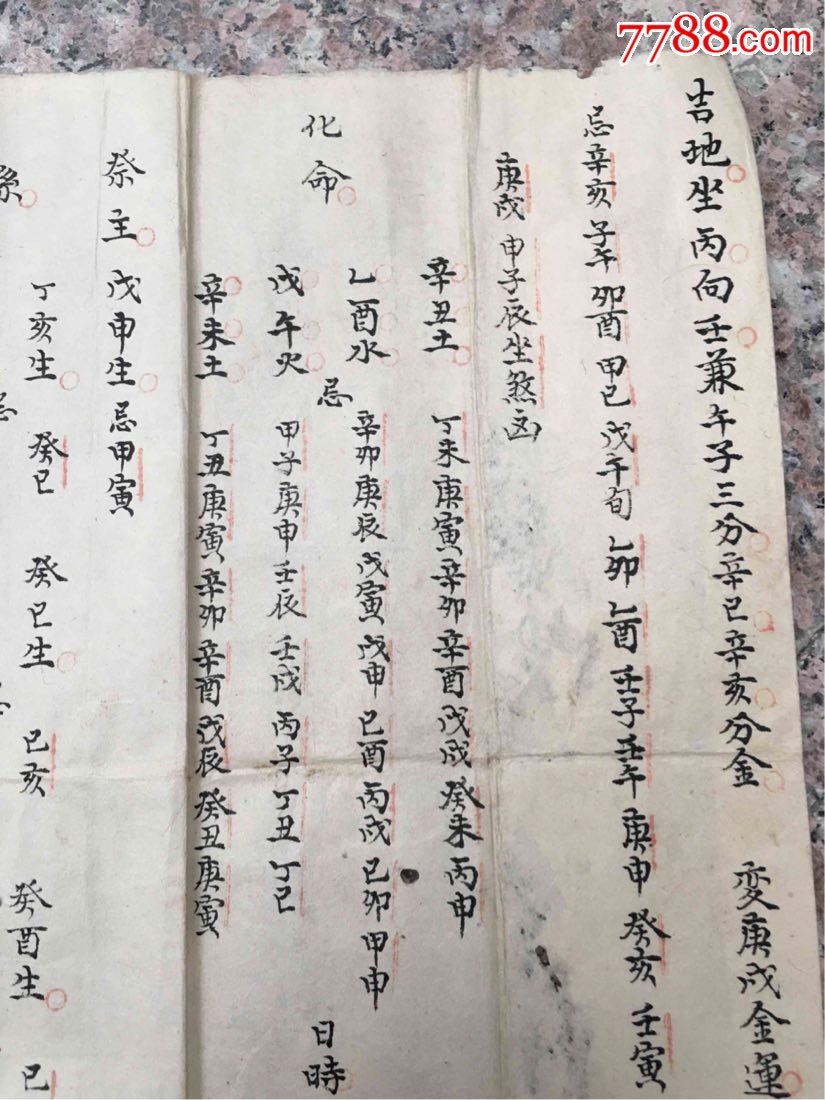 7788.com
吉地坐丙向壬兼午子三分辛巳辛亥分金 变庚戌金運
忌辛亥 子午 卯酉 甲己 戊午旬 乙卯 乙酉 壬子 壬午 庚申 癸亥 壬寅
庚戌 申子辰坐煞凶
辛丑土 丁未 庚寅 辛卯 辛酉 戊戌 癸未 丙申
乙酉水 辛卯 庚辰 戊寅 戊申 己酉 丙戌 己卯 甲申
化命 忌 日時
戊午火 甲子 庚申 壬辰 壬戌 丙子 丁丑 丁巳
辛未土 丁丑 庚寅 辛卯 辛酉 戊辰 癸丑 庚寅
祭主 戊申生 忌甲寅
丁亥生 癸巳 癸巳生 己亥 癸酉生 己